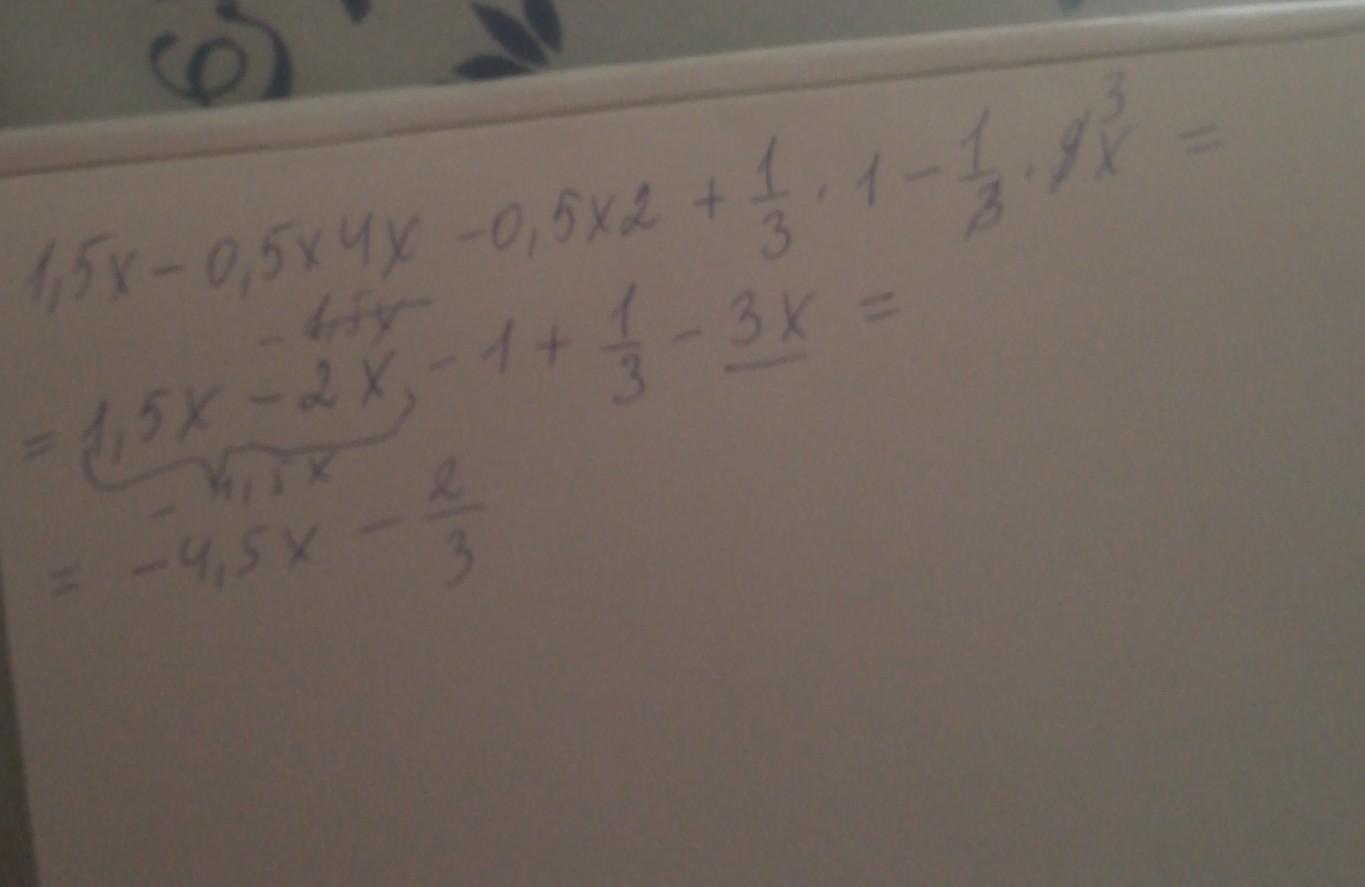 1,5x - 0,5x4x - 0,5x2 + 1/3 · 1 - 1/3 · 9x 3 =
- 1,5x
= 1,5x - 2x, - 1 + 1/3 - 3x =
- 1,5x
= -4,5x - 2/3